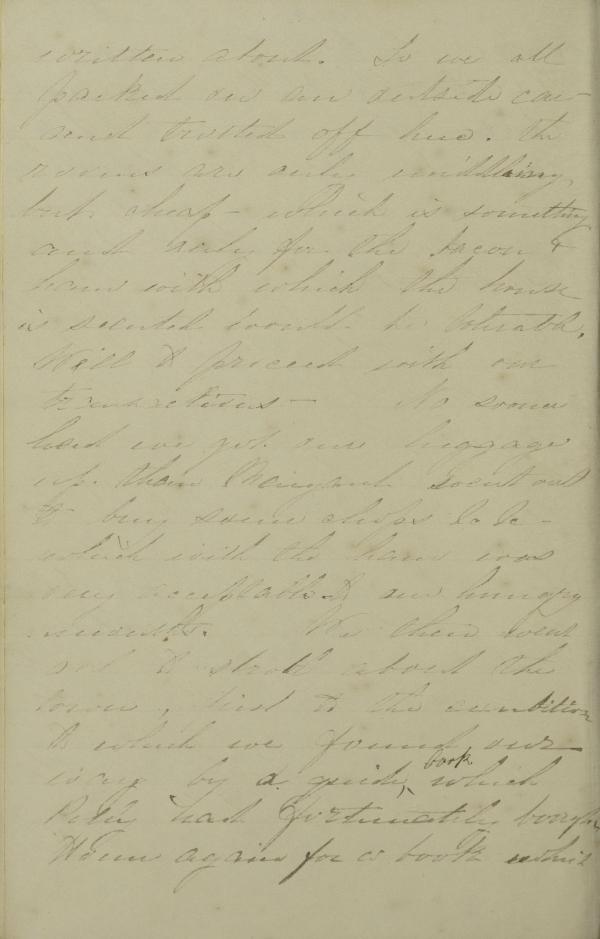 written about. So we all
packed on an outside car
and trotted off here. The
rooms are only middling
but cheap - which is something
and only for the bacon &
ham with which the house
is scented would be tolerable.
Well to proceed with our
transactions - No sooner
had we got our luggage
up than Margaret went out
to buy some chops &c &c -
which with the ham was
very acceptable to our hungry
mouths. We then went
out to stroll about the
town, first to the
to which we found our
way by a guide book, which
had fortunately bought
again for a book which